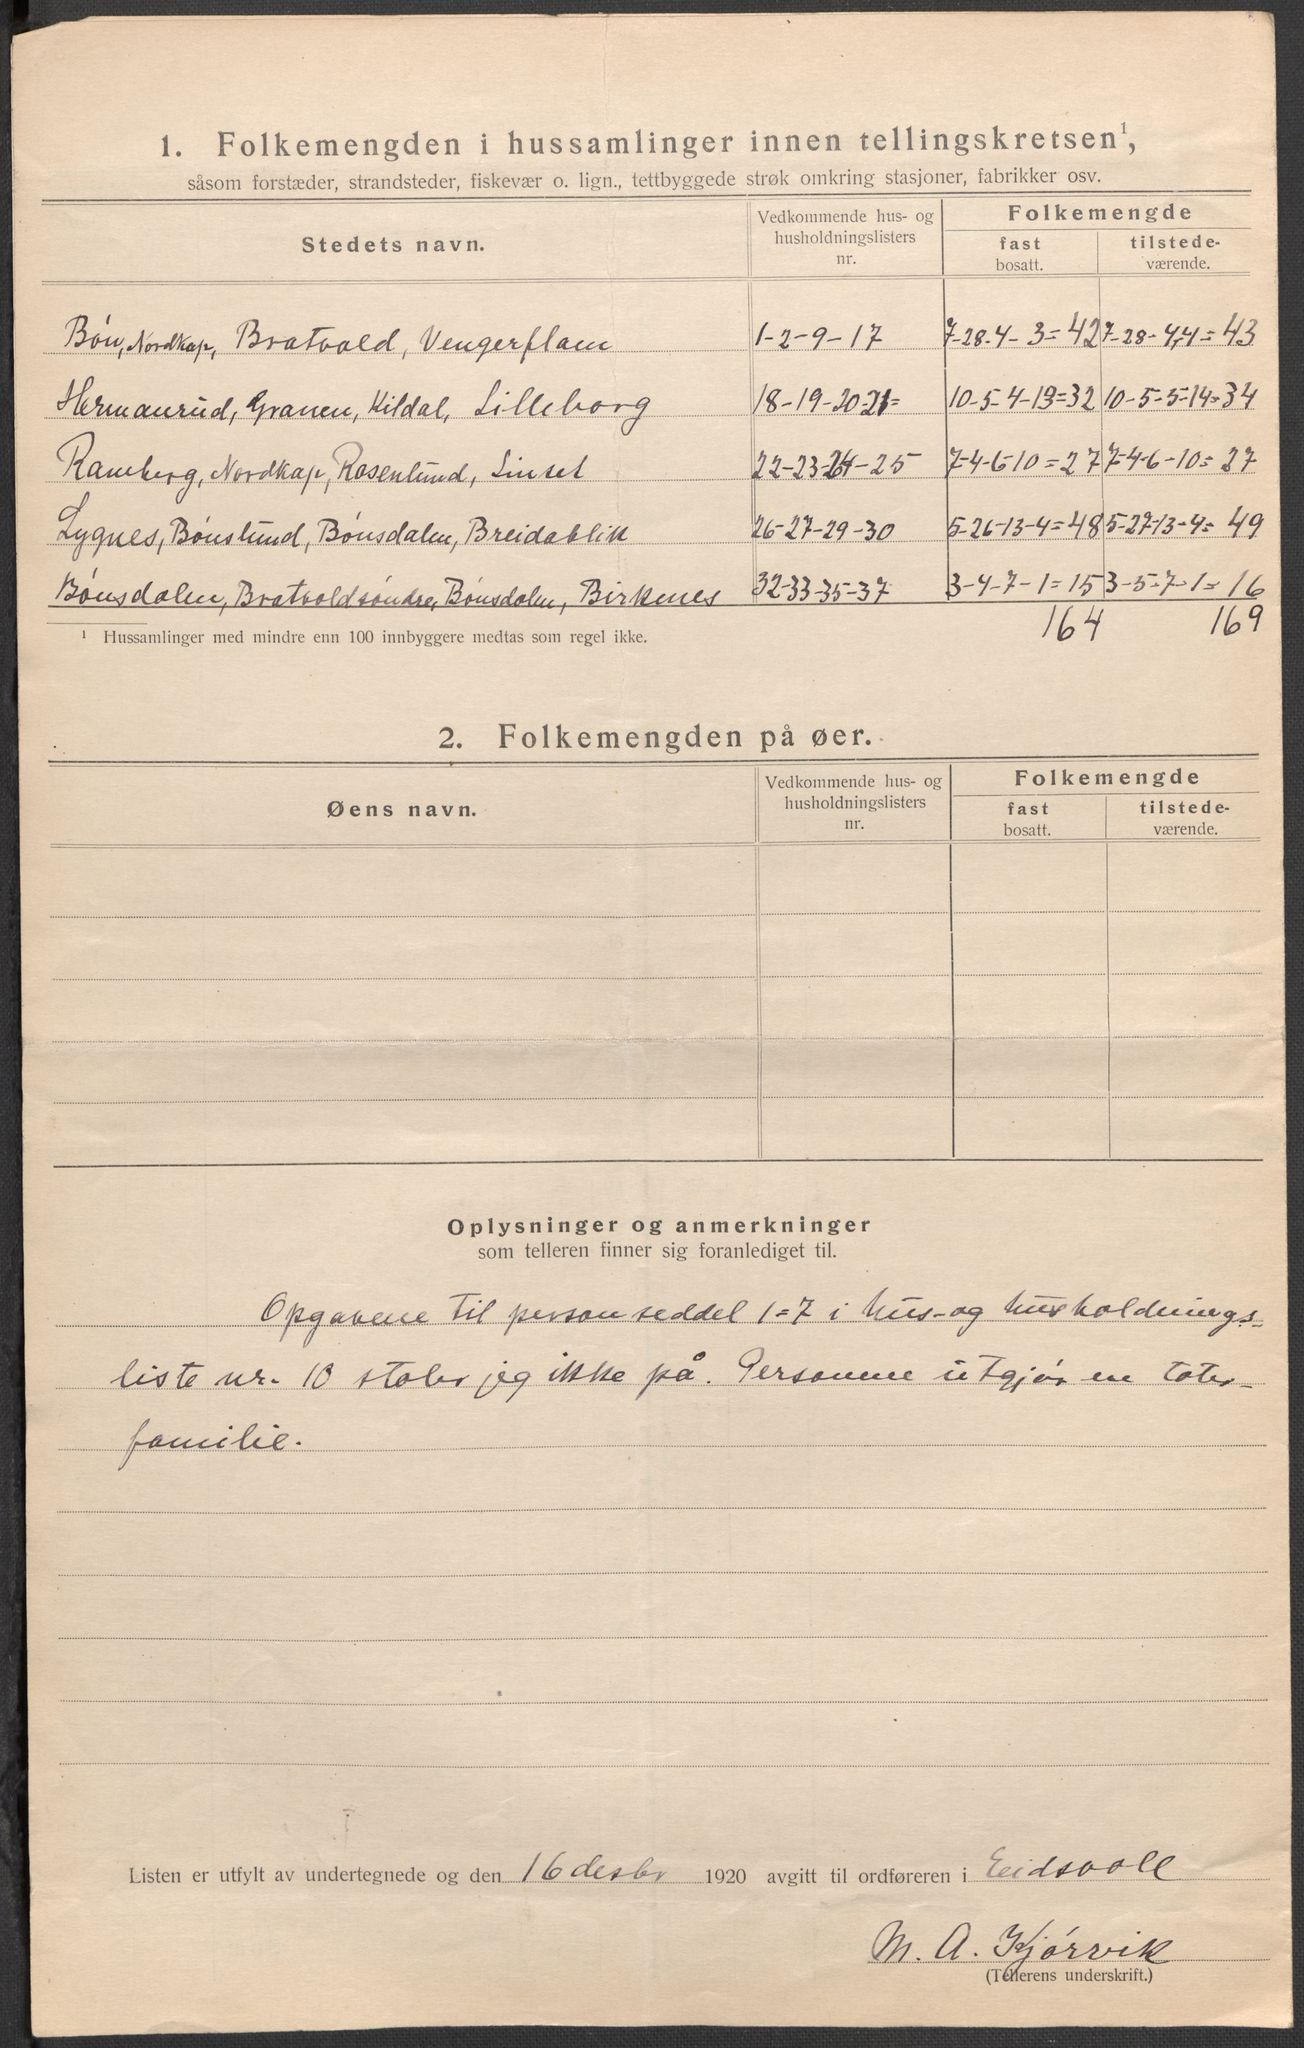 1. Folkemengden i hussamlinger innen tellingskretsen¹,
såsom forstæder, strandsteder, fiskevær o. lign., tettbyggede strøk omkring stasjoner, fabrikker osv.
Stedets navn. Vedkommende hus- og husholdningslisters nr. Folkemengde
fast bosatt. tilstede-værende.
Bøn, Nordkap, Bratvold, Vengerflam 1-2-9-17 7-28-4-3=42 7-28-4-4=43
Hermanrud, Granen, Kildal, Lilleborg 18-19-20-21= 10-5-4-13=32 10-5-5-14=34
Ramberg, Nordkap, Rosenlund, Linset 22-23-24-25 7-4-6-10=27 7-4-6-10=27
Lygnes, Bønslund, Bønsdalen, Breidablik 26-27-29-30 5-26-13-4=48 5-27-13-4=49
Bønsdalen, Bratvoldsøndre, Bønsdalen, Birkenes 32-33-35-37 3-4-7-1=15 3-5-7-1=16
164 169
¹ Hussamlinger med mindre enn 100 innbyggere medtas som regel ikke.
2. Folkemengden på øer.
Øens navn. Vedkommende hus- og husholdningslisters nr. Folkemengde
fast bosatt. tilstede-værende.
Oplysninger og anmerkninger
som telleren finner sig foranlediget til.
Opgavene til personseddel 1-7 i hus- og husholdnings-
liste nr. 18 stoler jeg ikke på. Personene utgjør en tater-
familie.
Listen er utfylt av undertegnede og den 16 desbr 1920 avgitt til ordføreren i Eidsvoll
M. A. Kjørvik
(Tellerens underskrift.)